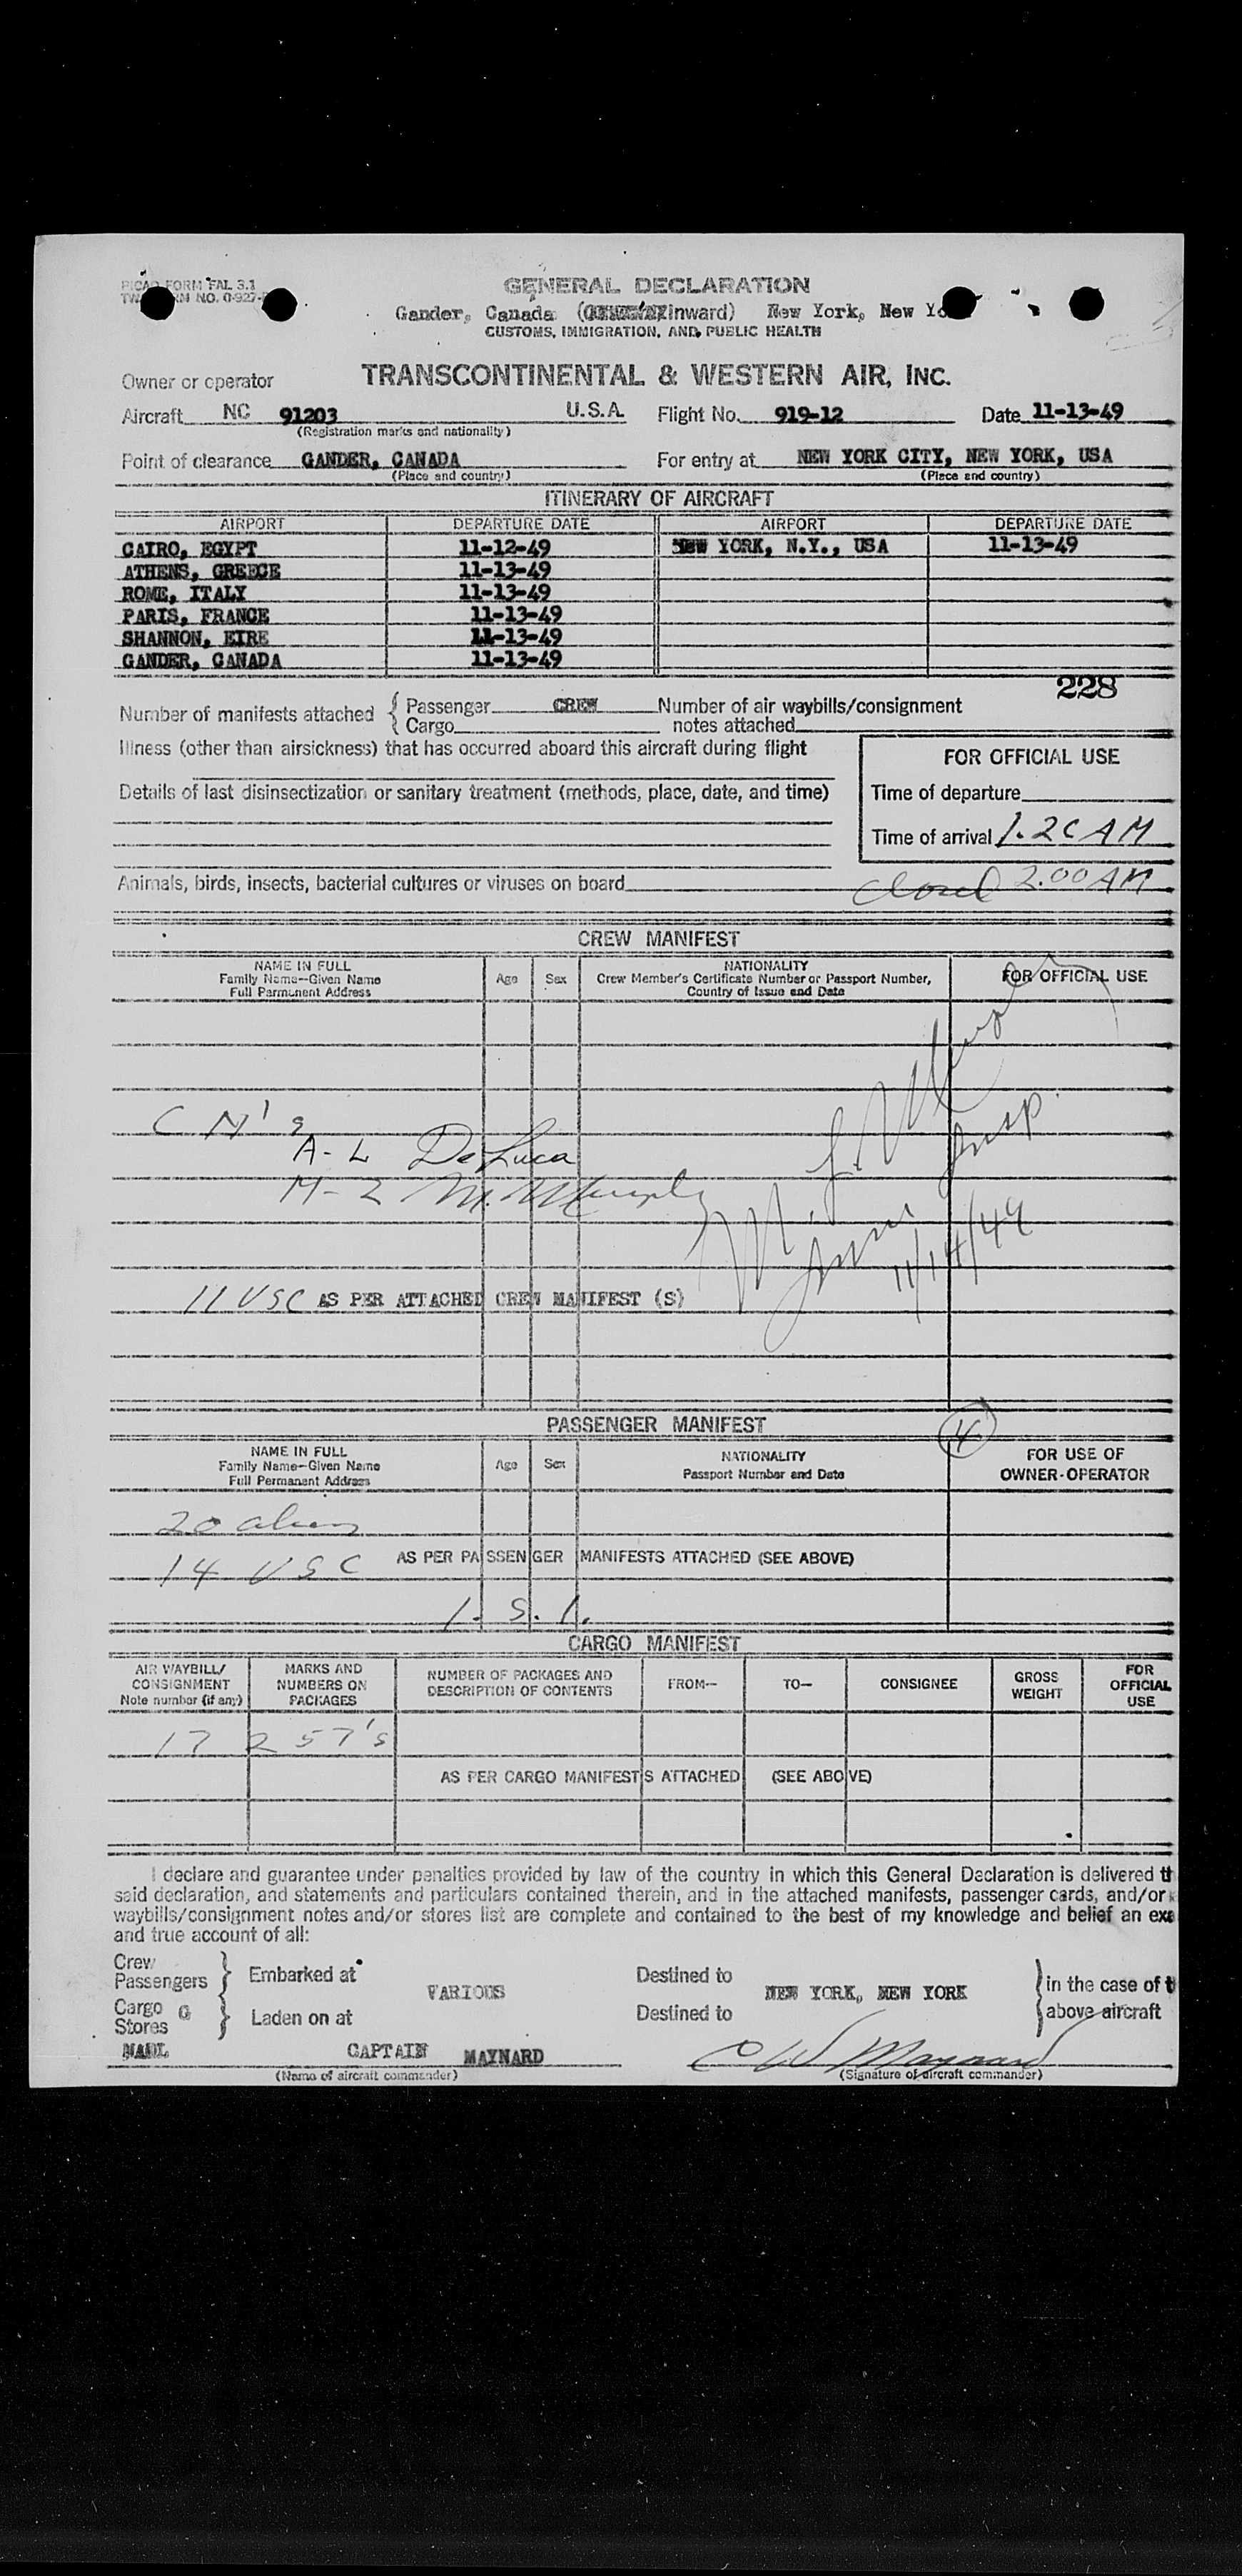 PICAO FORM FAL 3.1
GENERAL DECLARATION
Gander, Canada (Inward) New York, New Yo
CUSTOMS, IMMIGRATION, AND PUBLIC HEALTH
Owner or operator TRANSCONTINENTAL & WESTERN AIR, INC.
Aircraft NC 91203 U.S.A. Flight No. 919-12 Date 11-13-49
(Registration marks and nationality)
Point of clearance GANDER, CANADA For entry at NEW YORK CITY, NEW YORK, USA
(Place and country) (Place and country)
ITINERARY OF AIRCRAFT
AIRPORT DEPARTURE DATE AIRPORT DEPARTURE DATE
CAIRO, EGYPT 11-12-49 NEW YORK, N.Y., USA 11-13-49
ATHENS, GREECE 11-13-49
ROME, ITALY 11-13-49
PARIS, FRANCE 11-13-49
SHANNON, EIRE 11-13-49
GANDER, CANADA 11-13-49
228
Number of manifests attached { Passenger CREW Number of air waybills/consignment
Cargo notes attached
Illness (other than airsickness) that has occurred aboard this aircraft during flight
FOR OFFICIAL USE
Details of last disinsectization or sanitary treatment (methods, place, date, and time)
Time of departure
Time of arrival 1.20 AM
Animals, birds, insects, bacterial cultures or viruses on board
Closed 2.00 AM
CREW MANIFEST
NAME IN FULL
Family Name—Given Name
Full Permanent Address
Age Sex
NATIONALITY
Crew Member's Certificate Number or Passport Number,
Country of Issue and Date
FOR OFFICIAL USE
C M's
A-L DeLuca
M-Z M. Murphy
Insp.
11/14/49
11 USC AS PER ATTACHED CREW MANIFEST (S)
PASSENGER MANIFEST
NAME IN FULL
Family Name—Given Name
Full Permanent Address
Age Sex
NATIONALITY
Passport Number and Date
FOR USE OF
OWNER-OPERATOR
20 aliens
14 USC AS PER PASSENGER MANIFESTS ATTACHED (SEE ABOVE)
1. S. I.
CARGO MANIFEST
AIR WAYBILL/
CONSIGNMENT
Note number (if any)
MARKS AND
NUMBERS ON
PACKAGES
NUMBER OF PACKAGES AND
DESCRIPTION OF CONTENTS
FROM— TO— CONSIGNEE
GROSS
WEIGHT
FOR
OFFICIAL
USE
17 257's
AS PER CARGO MANIFESTS ATTACHED (SEE ABOVE)
I declare and guarantee under penalties provided by law of the country in which this General Declaration is delivered th
said declaration, and statements and particulars contained therein, and in the attached manifests, passenger cards, and/or
waybills/consignment notes and/or stores list are complete and contained to the best of my knowledge and belief an exa
and true account of all:
Crew
Passengers } Embarked at Destined to
VARIOUS NEW YORK, NEW YORK } in the case of t
Cargo G
Stores } Laden on at Destined to above aircraft
CAPTAIN MAYNARD C W Maynard
(Name of aircraft commander) (Signature of aircraft commander)